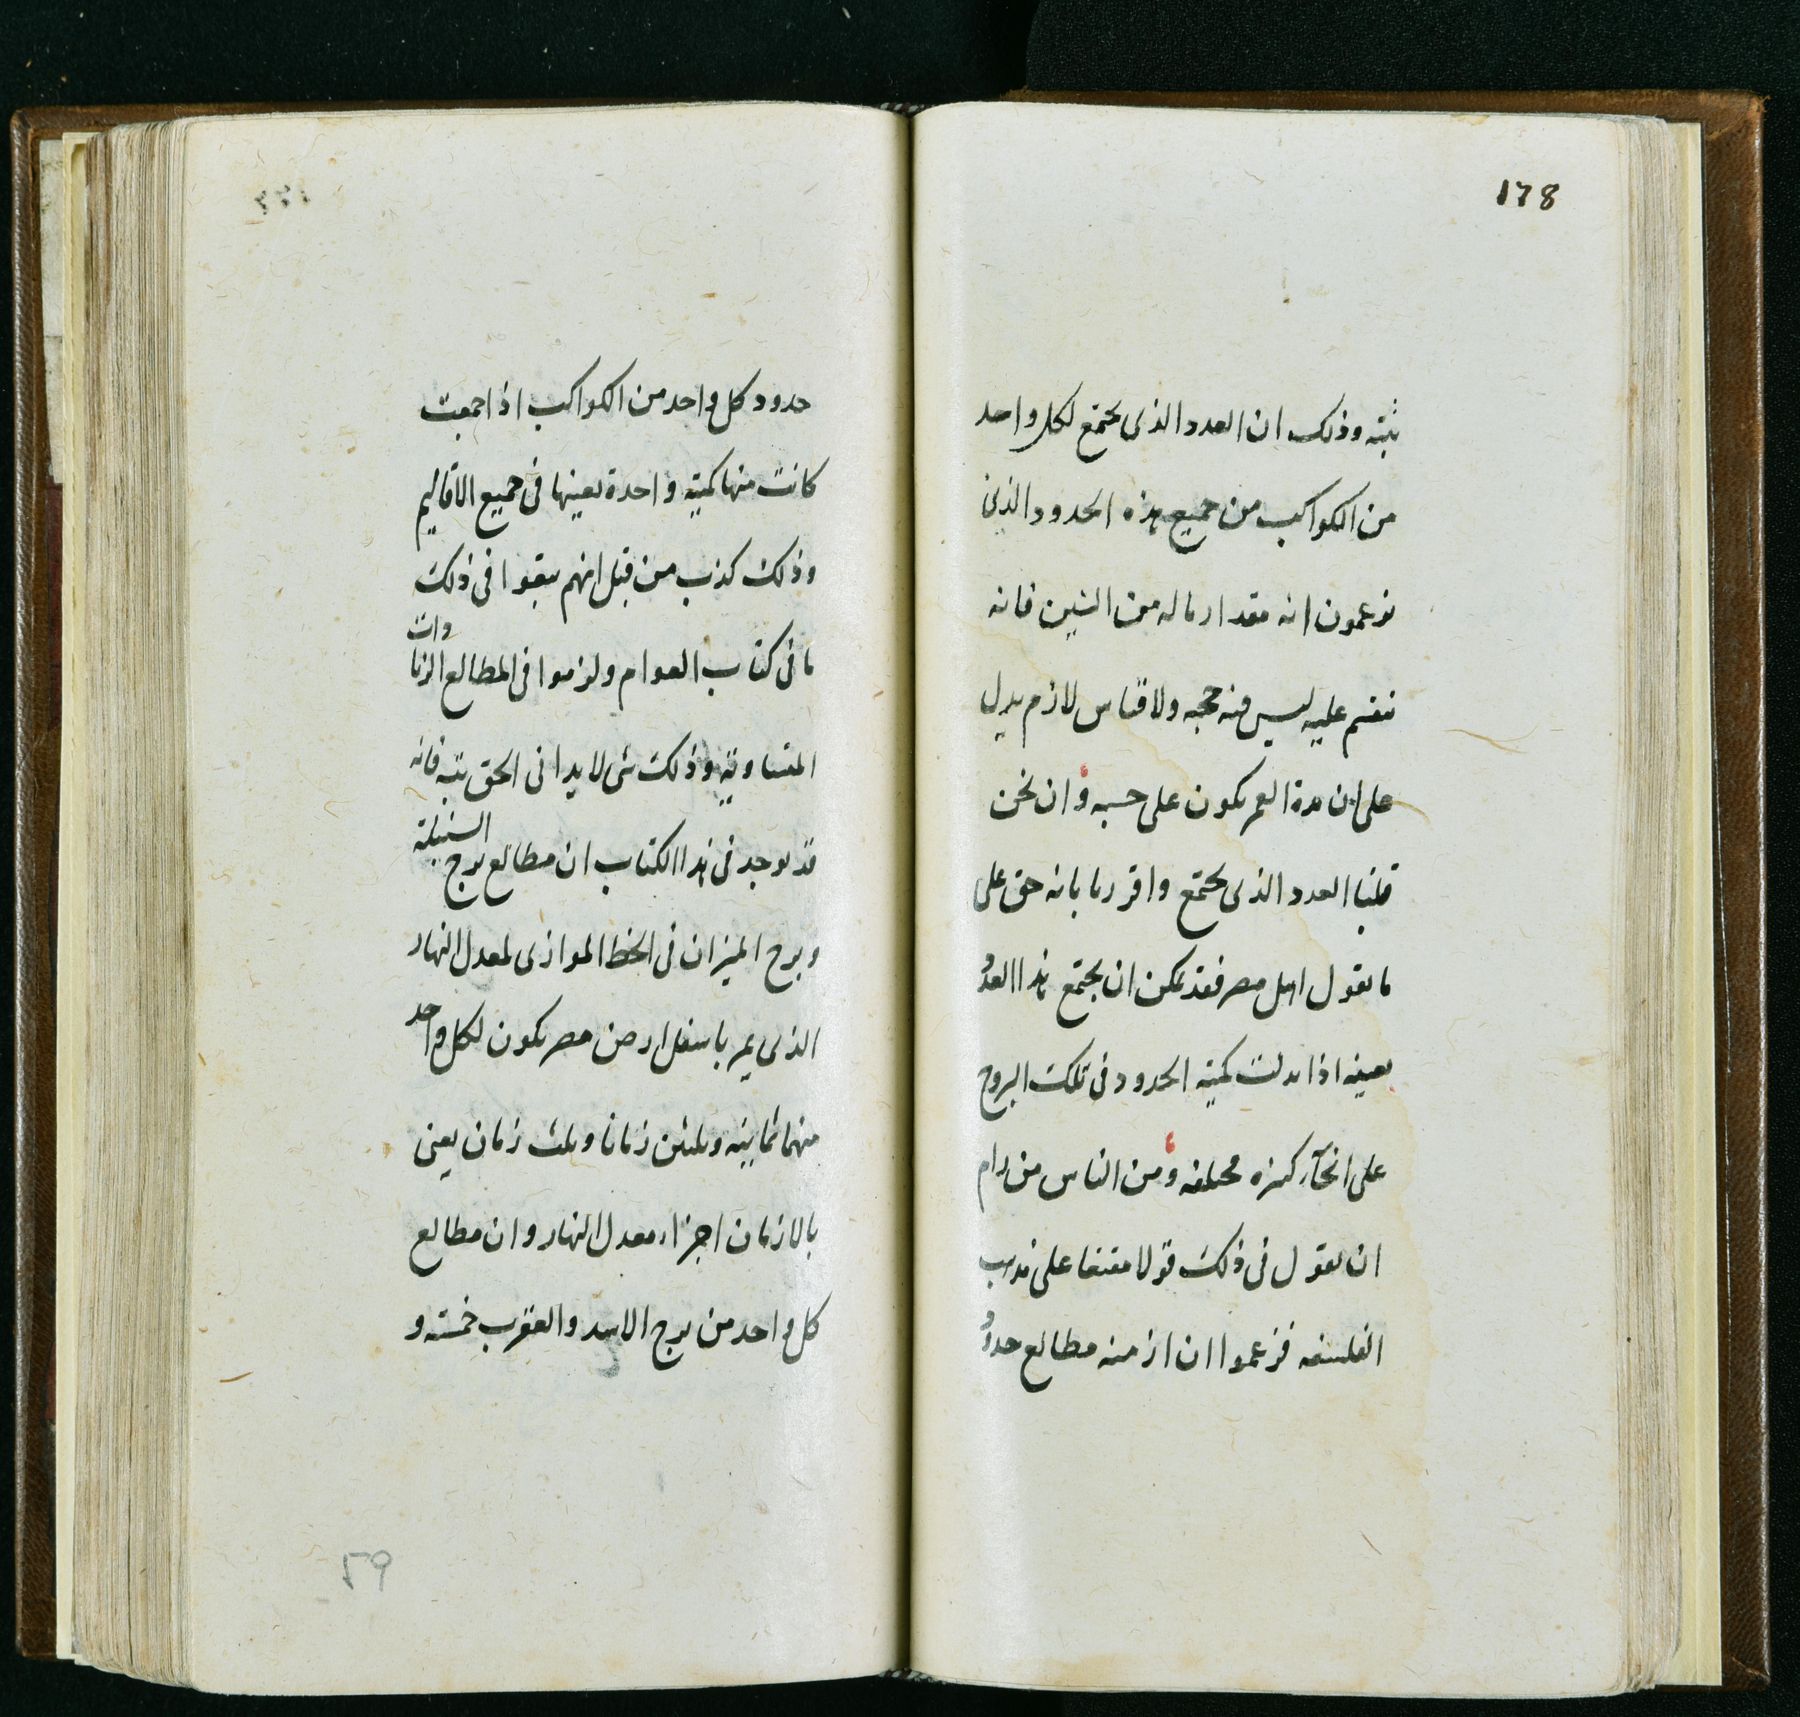 178
بتة وذلك ان العدد الذى يجتمع لكل واحد
من الكواكب من جميع هذه الحدود الذى
يزعمون انه مقدار ماله من السنين فانه
تقسم عليه ليس فيه حجه ولا قياس لازم يدل
على ان مدة العمر يكون على حسبه وان نحن
قلنا العدد الذى يجتمع واقررنا بانه حق على
ما يقول اهل مصر فقد يمكن ان يجتمع هذا العدد
بعينه اذا بدلت كمية الحدود فى تلك البروج
على انحآء كثيره مختلفه ومن الناس من رام
ان يقول فى ذلك قولا مقنعا على مذهب
الفلسفه فزعموا ان ازمنه مطالع حدود
حدود كل واحد من الكواكب اذا جمعت
كانت منها كمية واحدة بعينها فى جميع الاقاليم
وذلك كذب من قبل انهم تبعوا فى ذلك
ما فى كتاب العوام ولزموا فى المطالع الزيادات
المتساوية وذلك شى لا يدانى الحق بتة فانه
قد يوجد فى هذا الكتاب ان مطالع برج السنبلة
وبرج الميزان فى الخط الموازى لمعدل النهار
الذى يمر باسفل ارض مصر يكون لكل واحد
منهما ثمانيه وثلثين زمانا وثلث زمان يعنى
بالازمان اجزاء معدل النهار وان مطالع
كل واحد من برج الاسد والعقرب خمسه و
59